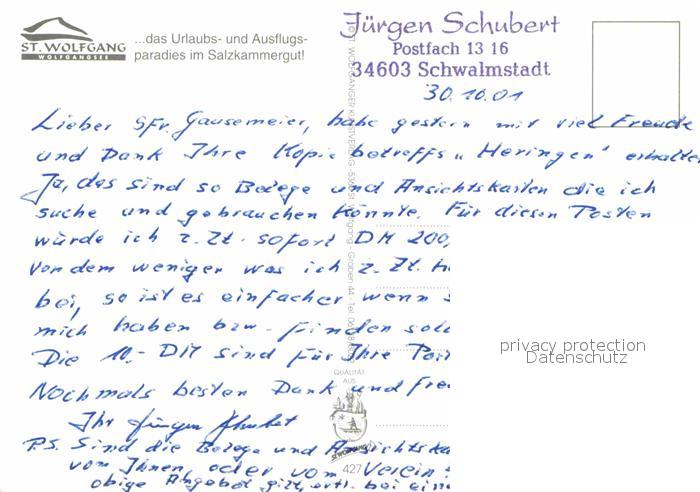 ST. WOLFGANG
WOLFGANGSEE
...das Urlaubs- und Ausflugs-
paradies im Salzkammergut!
Jürgen Schubert
Postfach 13 16
34603 Schwalmstadt
30.10.01
Lieber SFr. Gausemeier, habe gestern mit viel Freude
und Dank Ihre Kopie betreffs "Heringen" erhalte
Ja, das sind so Belege und Ansichtskarten die ich
suche und gebrauchen könnte. Für diesen Posten
würde ich z. Zt. sofort DM 200,
von dem wenigen was ich z. Zt. h
bei, so ist es einfacher wenn s
mich haben bzw. finden soll
Die 10,- DM sind für Ihre Por
Nochmals besten Dank und Fre
Ihr Jürgen Schubert
P.S. Sind die Belege und Ansichtska
von Ihnen, oder vom Verein
obige Angebot gilt, evtl. bei ein
privacy protection
Datenschutz
QUALITÄT
AUS
ST. WOLFGANG
427